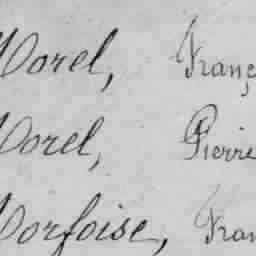 Morel, Franç
Morel, Pierre
Morfoise, Fran